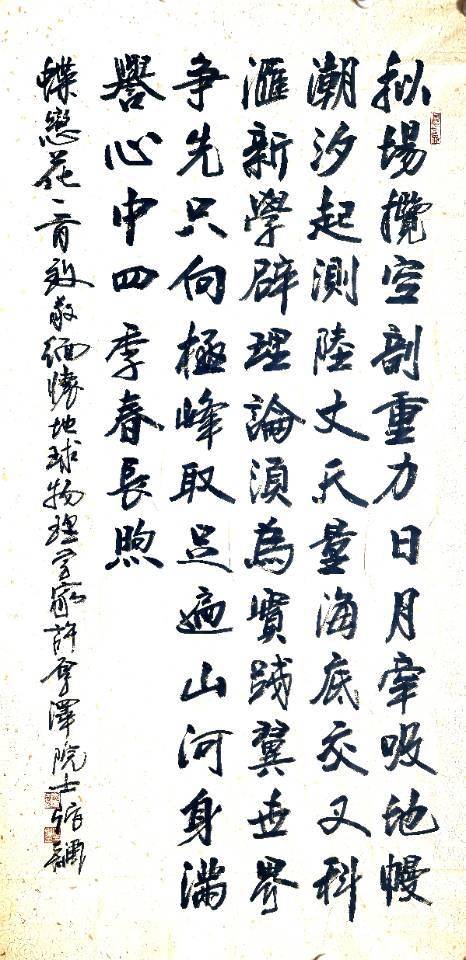 拟場攬空剖重力日月牽吸地幔
潮汐起測陸丈天量海底交叉科
滙新學辟理論須為實踐翼世界
争先只向極峰取足遍山河身滿
譽心中四季春長煦
蝶戀花一首致敬緬懷地球物理學家許厚澤院士